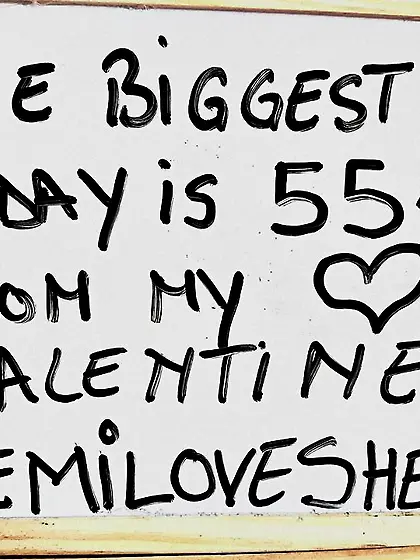 E BiGGEST
DAY is 55
OM MY ♡
ALENTiNE
EMiLOVESHE